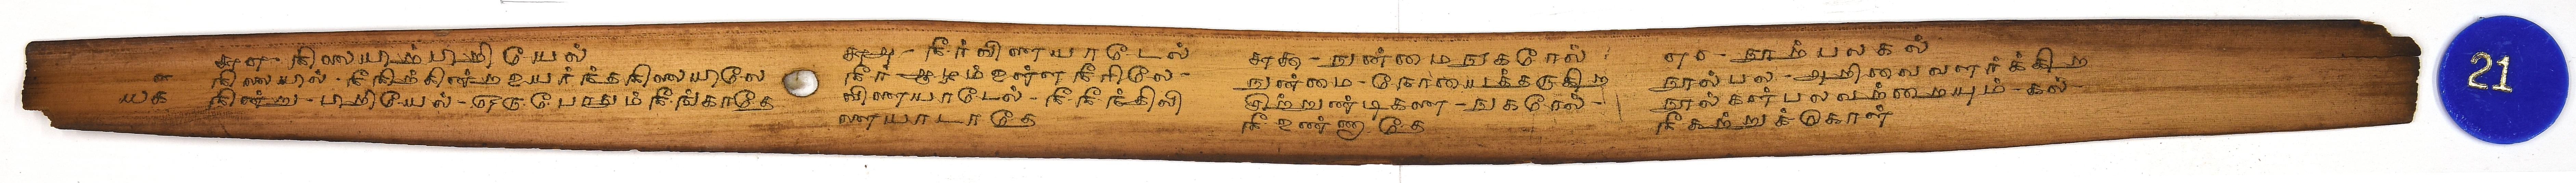 ௰௧
௬௭ - நிலையிற்பிறியேல்
நிலையில் - நீ நிற்கின்ற உயர்ந்த நிலையிலே
நின்று - பிறியேல் - ஒருபோதும் நீங்காதே
௬௮ - நீர்விளையாடேல்
நீர் - ஆழம் உள்ள நீரிலே -
விளையாடேல் - நீ நீந்திவி
ளையாடாதே
௬௯ - நுண்மை நுகரேல்
நுண்மை - நோயைத்தருகிற
சிற்றுண்டிகளை - நுகரேல் -
நீ உண்ணாதே
௭௦ - நூற்பலகல்
நூல்பல - அறிவை வளர்க்கிற
நூல்கள் பலவற்றையும் - கல் -
நீ கற்றுக்கொள்
21